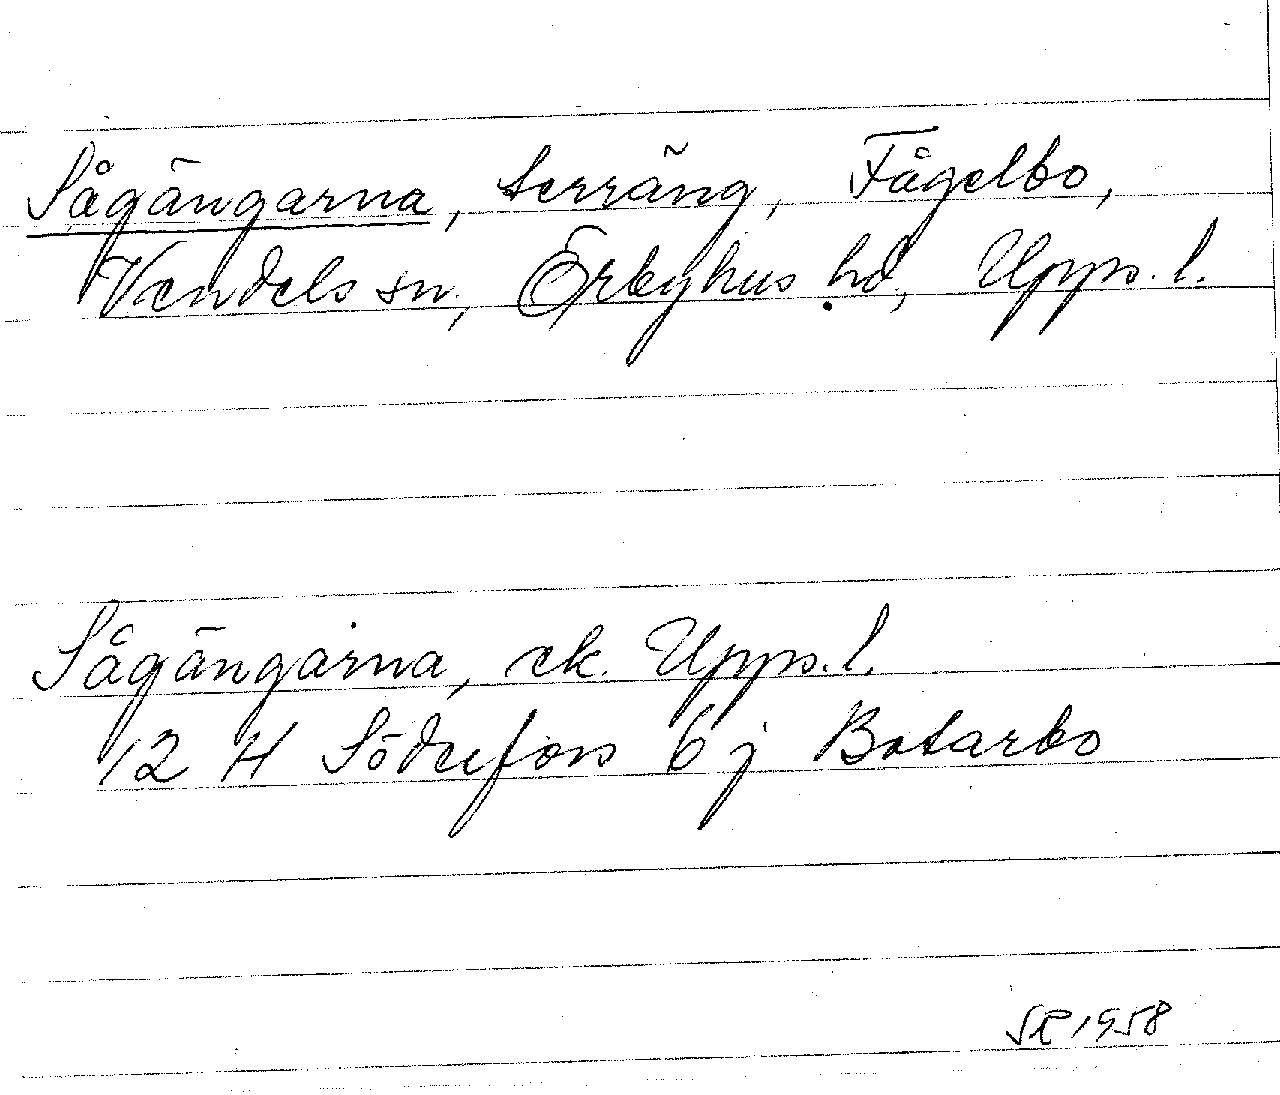 Sågängarna, terräng, Fågelbo,
Vendels sn, Örbyhus hd, Upps. l.
Sågängarna, ek. Upps. l.
12 H Söderfors 6 j Botarbo
1958